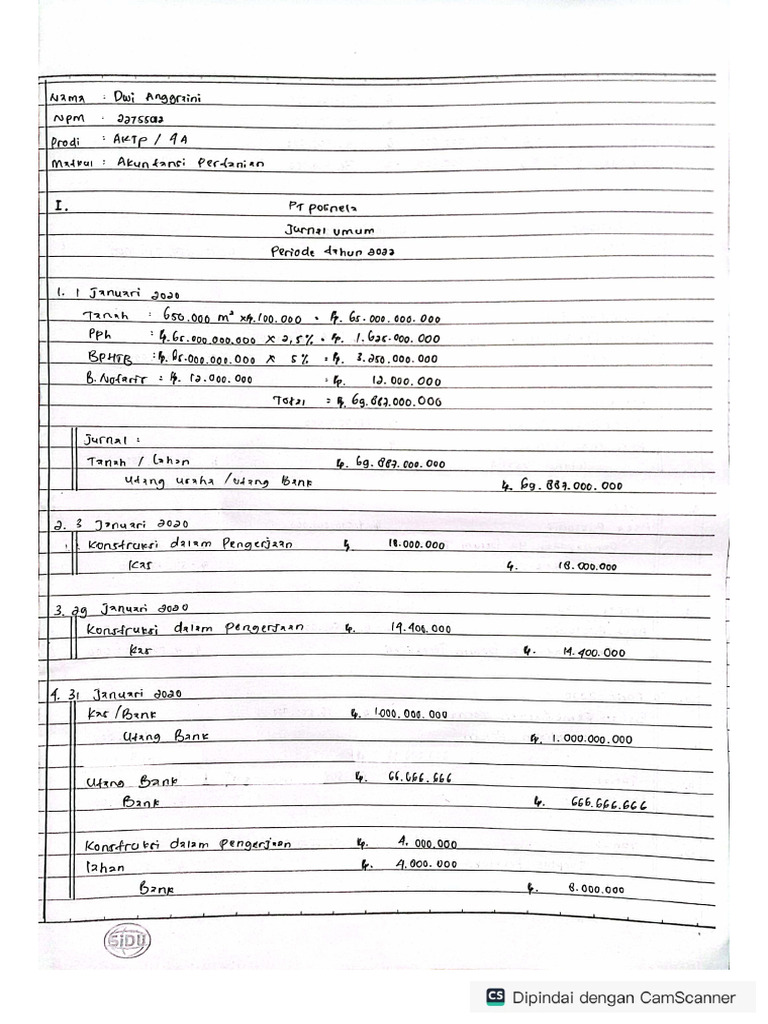 Nama : Dwi Anggraini
NPM : 2275502
Prodi : AKTP / 4A
Matkul : Akuntansi Pertanian
I. PT Polinela
Jurnal Umum
Periode tahun 2022
1. 1 Januari 2020
Tanah : 650.000 m² x Rp. 100.000 = Rp. 65.000.000.000
Pph : Rp. 65.000.000.000 x 2,5% = Rp. 1.625.000.000
BPHTB : Rp. 65.000.000.000 x 5% = Rp. 3.250.000.000
B. Notaris = Rp. 12.000.000 = Rp. 12.000.000
Total = Rp. 69.887.000.000
Jurnal :
Tanah / Lahan Rp. 69.887.000.000
Utang usaha / utang Bank Rp. 69.887.000.000
2. 3 Januari 2020
Konstruksi dalam Pengerjaan Rp 18.000.000
Kas Rp. 18.000.000
3. 29 Januari 2020
Konstruksi dalam Pengerjaan Rp. 14.400.000
Kas Rp. 14.400.000
4. 31 Januari 2020
Kas / Bank Rp. 1.000.000.000
Utang Bank Rp. 1.000.000.000
Utang Bank Rp. 66.666.666
Bank Rp. 666.666.666
Konstruksi dalam pengerjaan Rp. 4.000.000
lahan Rp. 4.000.000
Bank Rp. 8.000.000
SIDU
CS Dipindai dengan CamScanner